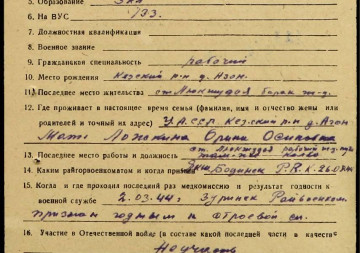 5. Образование
6. На ВУС 133.
7. Должностная квалификация
8. Военное звание
9. Гражданская специальность рабочий
10. Место рождения Кезский р-н д. Азон.
11. Последнее место жительства ст.
12. Где проживает в настоящее время семья (фамилия, имя и отчество жены или
родителей и точный их адрес) УАССР. Кезский р-н д. Азон
Мать Ложкина Осиповна
13. Последнее место работы и должность ст. рабочий
14. Каким райгорвоенкоматом и когда призван
15. Когда и где проходил последний раз медкомиссию и результат годности к
военной службе 2.03.44г. Зуринск Райвоенком.
признан годным к строевой сл.
16. Участие в Отечественной войне (в составе какой последней части в качестве
Не участв